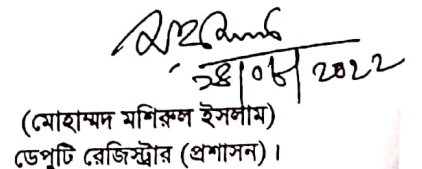 ২৪|০৮|২০২২
(মোহাম্মদ মশিরুল ইসলাম)
ডেপুটি রেজিস্ট্রার (প্রশাসন)।